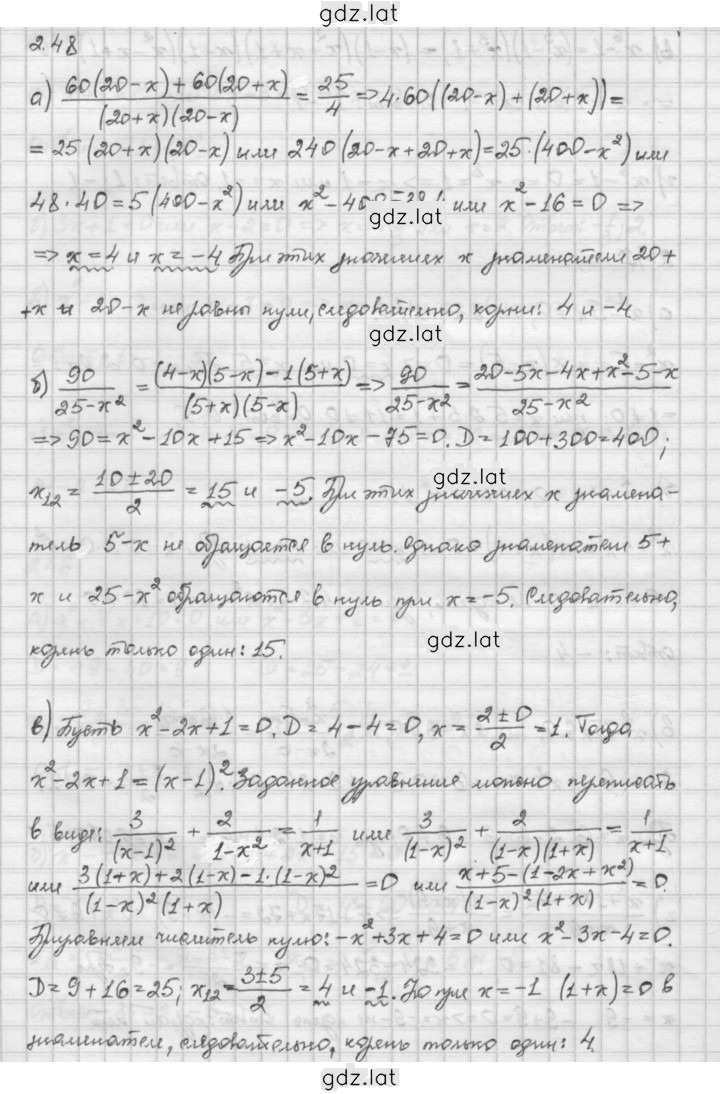 gdz.lat
2.48
а) (60(20-x)+60(20+x))/((20+x)(20-x)) = 25/4 => 4·60((20-x)+(20+x))=
= 25(20+x)(20-x) или 240(20-x+20+x)=25·(400-x²) или
48·40=5(400-x²) или x²-400=-384 или x²-16=0 =>
gdz.lat
=> x=4 и x=-4. При этих значениях x знаменатели 20+
+x и 20-x не равны нулю, следовательно, корни: 4 и -4.
gdz.lat
б) 90/(25-x²) = ((4-x)(5-x)-1(5+x))/((5+x)(5-x)) => 90/(25-x²) = (20-5x-4x+x²-5-x)/(25-x²)
=> 90=x²-10x+15 => x²-10x-75=0. D=100+300=400;
x₁₂ = (10±20)/2 = 15 и -5. При этих значениях x знамена-
gdz.lat
тель 5-x не обращается в нуль. Однако знаменатели 5+
x и 25-x² обращаются в нуль при x=-5. Следовательно,
корень только один: 15.
gdz.lat
в) Пусть x²-2x+1=0. D=4-4=0, x=(2±0)/2=1. Тогда
x²-2x+1=(x-1)². Заданное уравнение можно переписать
в виде: 3/(x-1)² + 2/(1-x²) = 1/(x+1) или 3/(1-x)² + 2/((1-x)(1+x)) = 1/(x+1)
или (3(1+x)+2(1-x)-1·(1-x)²)/((1-x)²(1+x)) =0 или (x+5-(1-2x+x²))/((1-x)²(1+x)) =0.
Приравняем числитель нулю: -x²+3x+4=0 или x²-3x-4=0.
D=9+16=25; x₁₂=(3±5)/2 = 4 и -1. Но при x=-1 (1+x)=0 в
знаменателе, следовательно, корень только один: 4.
gdz.lat